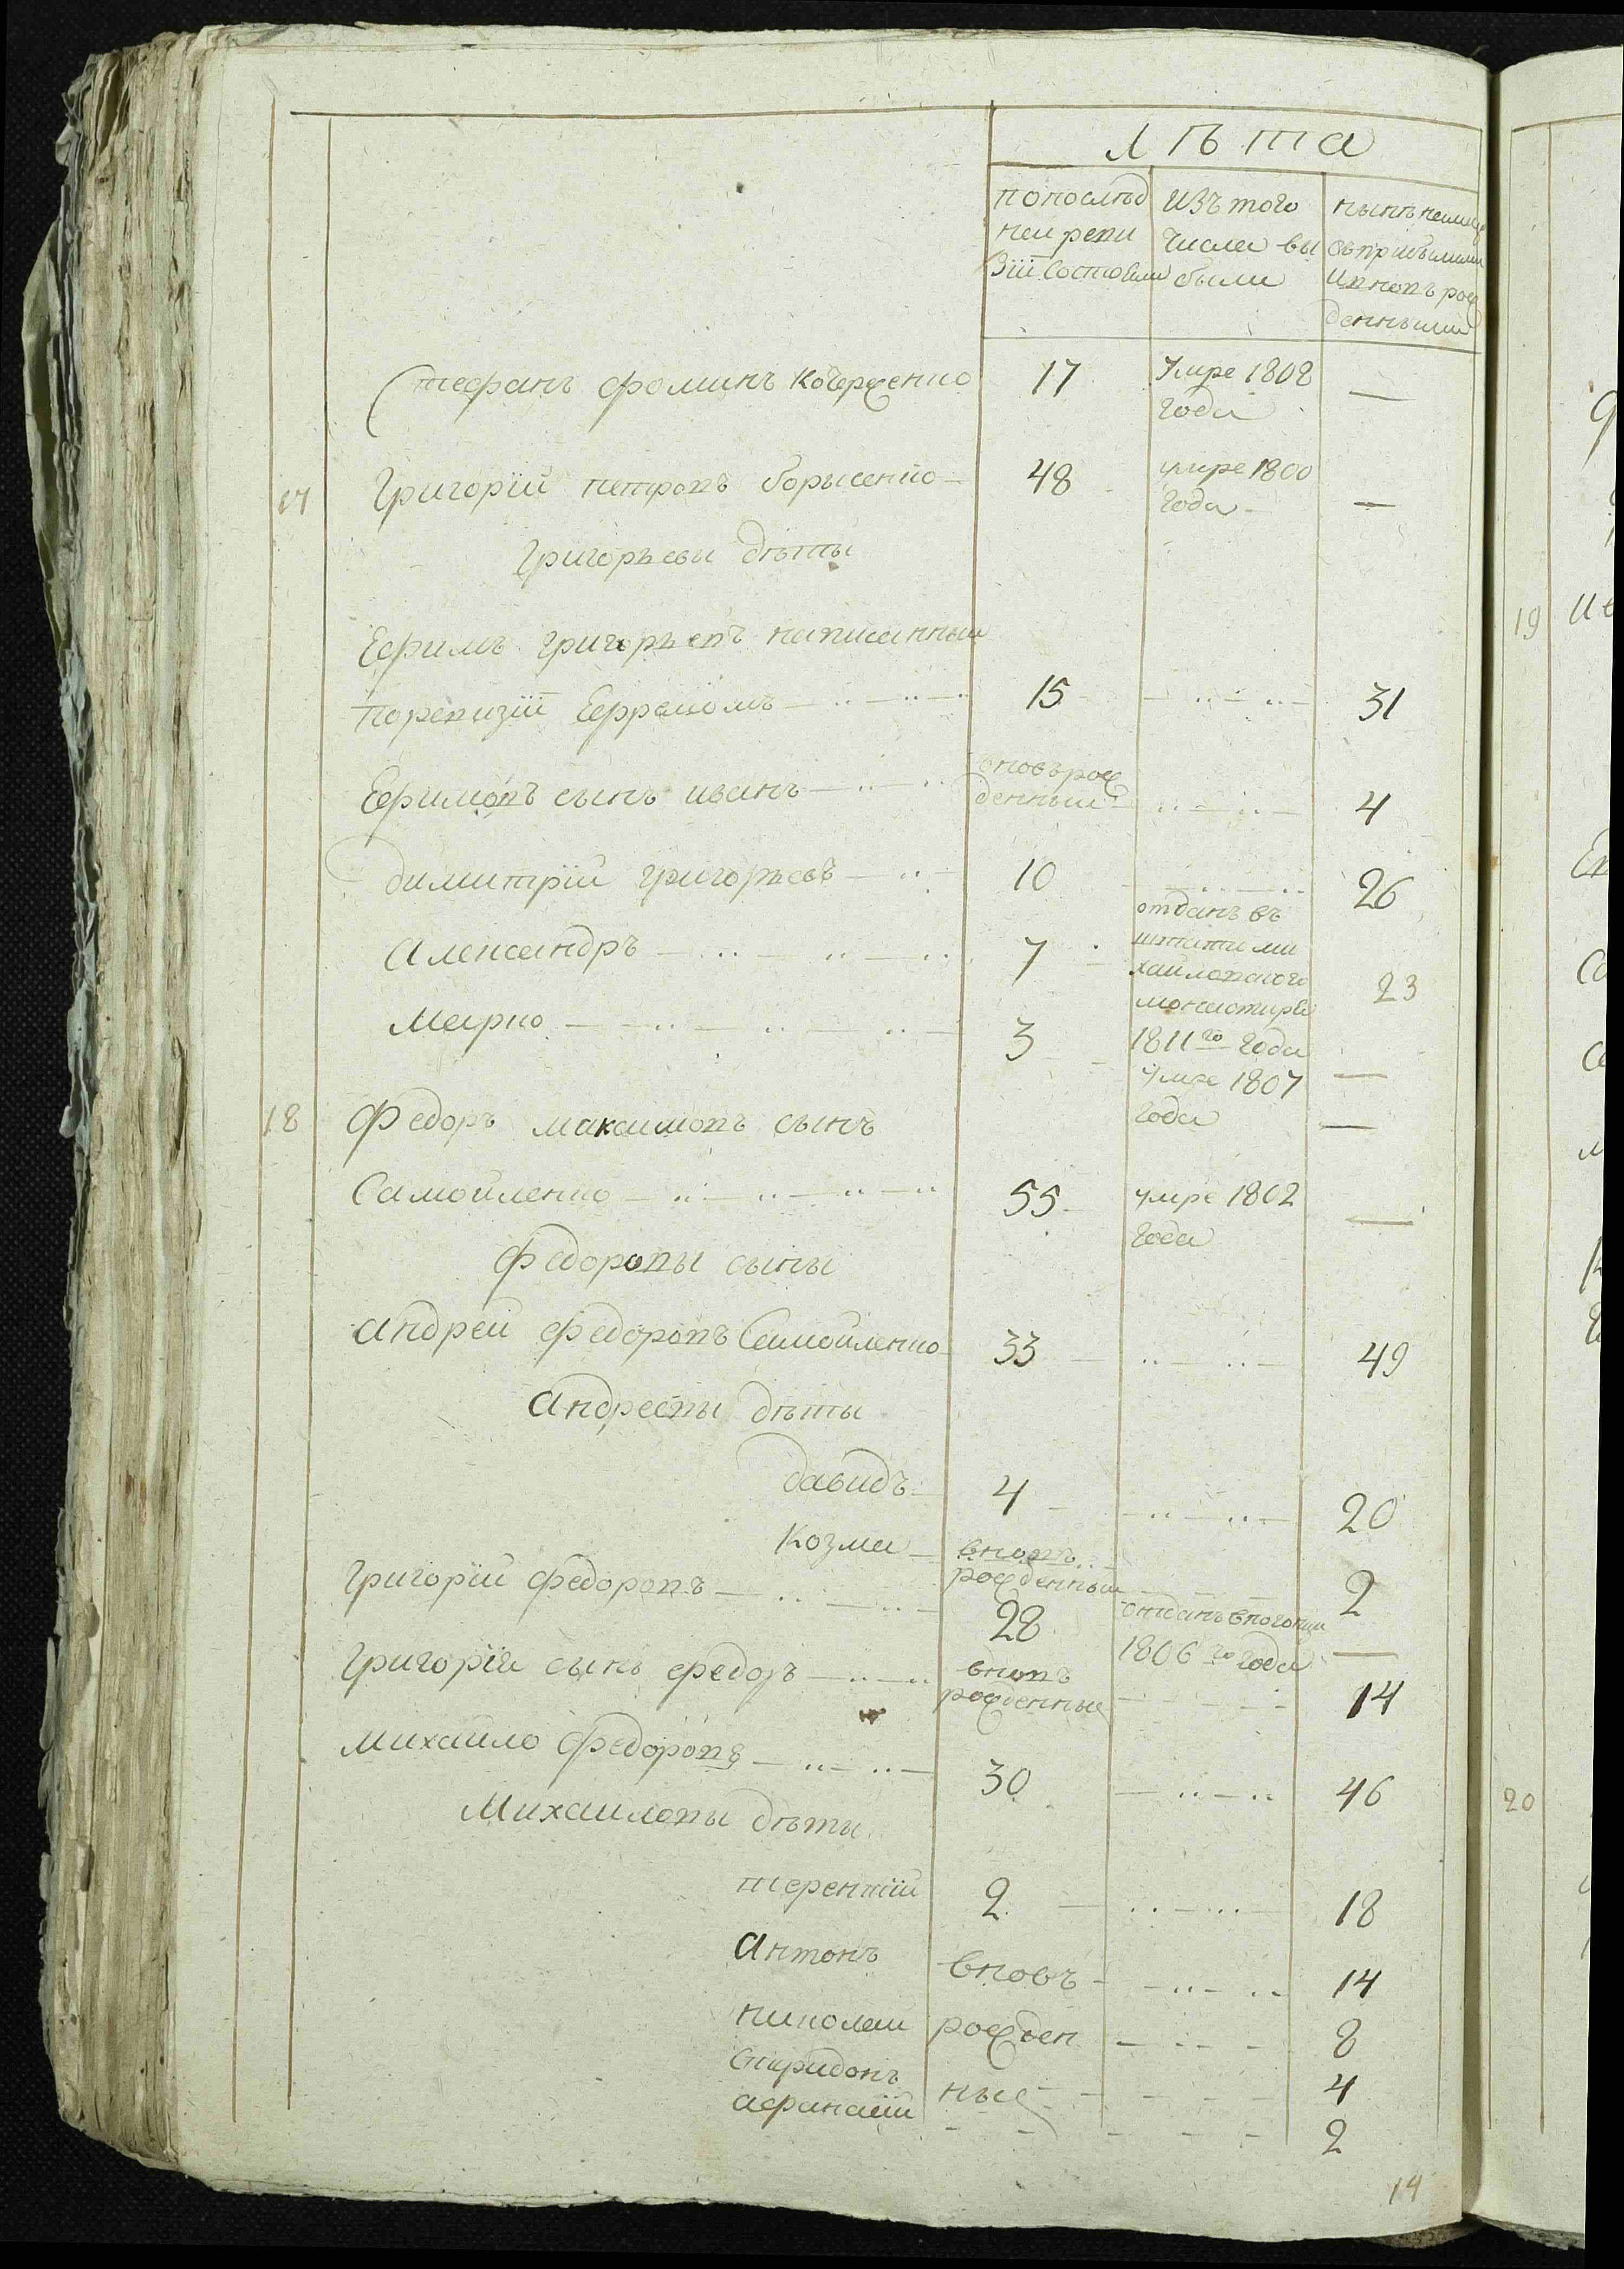 лѣта
попослѣд
ней реви
зіи состояли
изъ того
числа вы
были
нынѣ налицо
съ прибылыми
и вновь рож
денными
Стефанъ Фоминъ 17 умре 1808 —
года
17 Григорїй петровъ борисенко 48 умре 1800
года —
григорьевы дѣты
Ефимъ григорьевъ написанный
поревизіи Ефремомъ 15 31
Ефимовъ сынъ иванъ вновърож
денный 4
димитрїй григорьевъ 10 26
Александръ 7 отданъ въ
штатъ ми
хайловского
монастыря 23
1811го года
Марко 3 умре 1807
года —
18 Федоръ максимовъ сынъ
Самойленко 55 умре 1802
года —
Федоровы сыны
Андрей Федоровъ Самойленко 33 49
Андреевы дѣты
давидъ 4 20
Козма вновъ
рожденный 2
Григорїй Федоровъ 28 отданъ
1806го года —
Григорїя сынъ федоръ вновъ
рожденные 14
михайло Федоровъ 30 46
Михаиловы дѣты
терентїй 2 18
Антонъ вновъ 14
николай рожден 8
Спиридонъ ные 4
афанасїй 2
14
19
20